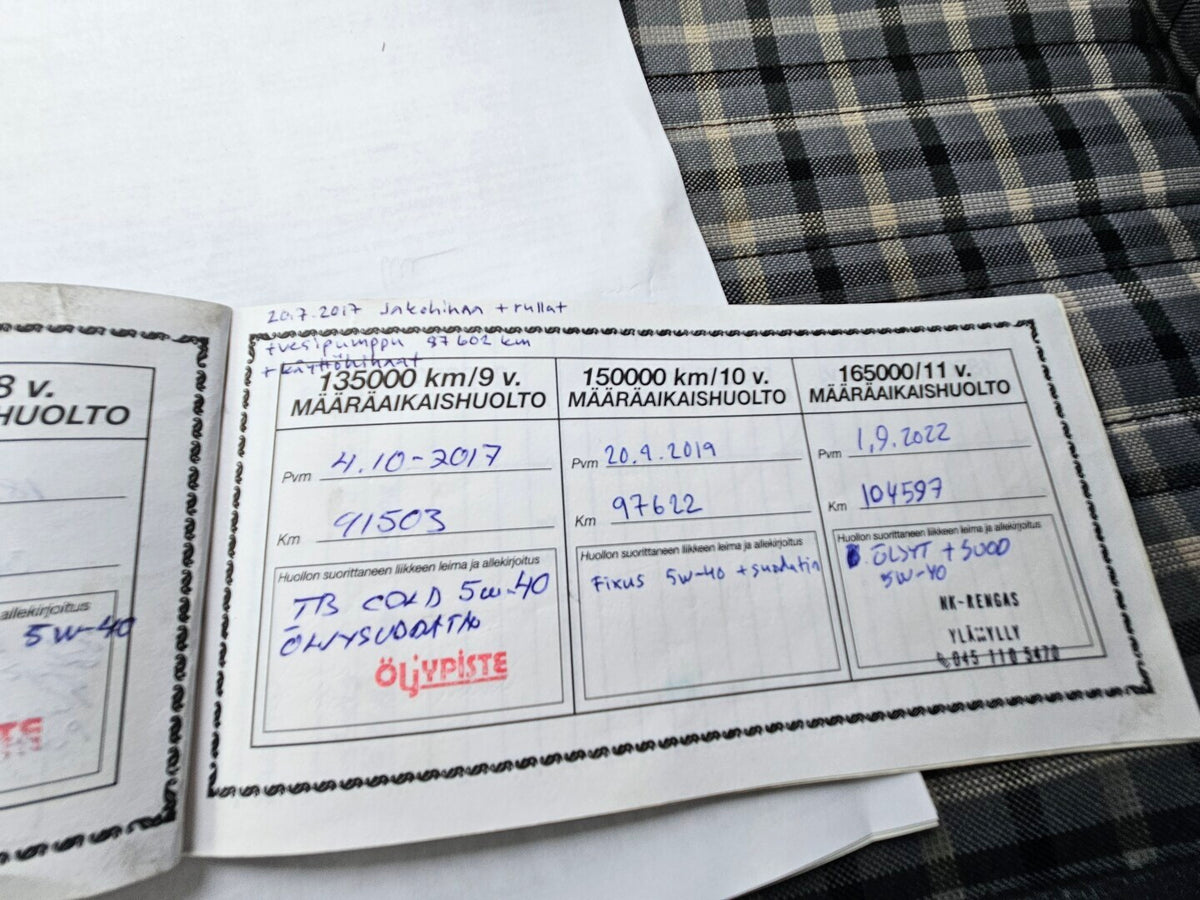 20.7.2017 Jakohihna + rullat
+vesipumppu 87602 km
+ käyttöhihnat
8 v.
SHUOLTO
allekirjoitus
5W-40
TE
135000 km/9 v.
MÄÄRÄAIKAISHUOLTO
Pvm 4.10-2017
Km 91503
Huollon suorittaneen liikkeen leima ja allekirjoitus
TB COLD 5W-40
ÖLJYSUODATIN
ÖLJYPISTE
150000 km/10 v.
MÄÄRÄAIKAISHUOLTO
Pvm 20.9.2019
Km 97622
Huollon suorittaneen liikkeen leima ja allekirjoitus
Fixus 5W-40 + suodatin
165000/11 v.
MÄÄRÄAIKAISHUOLTO
Pvm 1,9.2022
Km 104597
Huollon suorittaneen liikkeen leima ja allekirjoitus
ÖLJYT + SUOD
5W-40
NK-RENGAS
YLÄMYLLY
045 110 5470